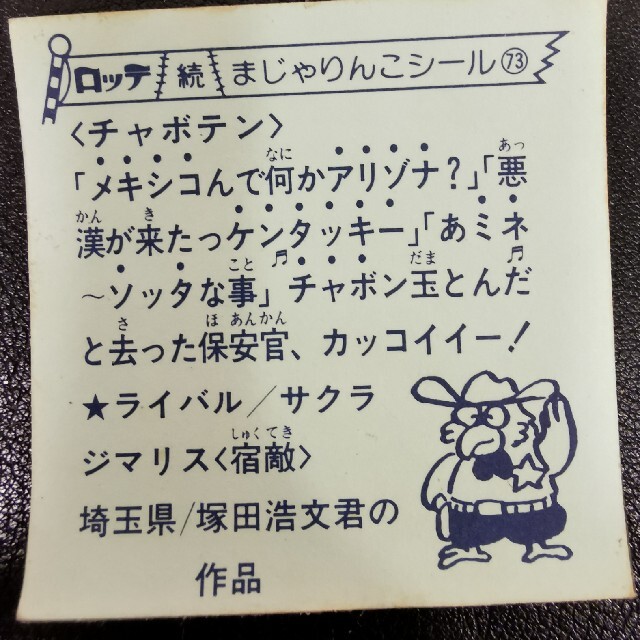 ロッテ 続 まじゃりんこシール 73
〈チャボテン〉
「メキシコんで何かアリゾナ？」「悪
漢が来たっケンタッキー」「あミネ
～ソッタな事」♬チャボン玉とんだ♬
と去った保安官、カッコイイー！
★ライバル／サクラ
ジマリス〈宿敵〉
埼玉県／塚田浩文君の
作品